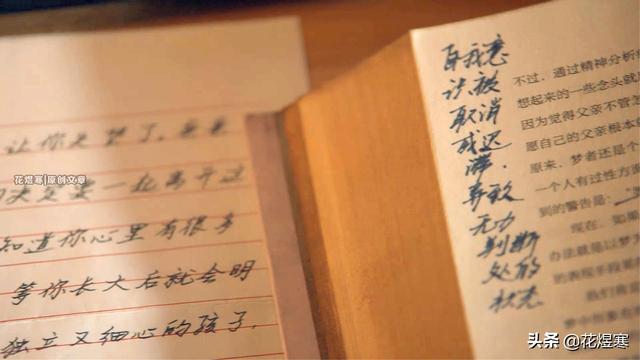 让你失望了,爸爸
决定要一起离开这
知道你心里有很多
等你长大后就会明
独立又细心的孩子.
花煜寒|原创文章
自我意
识被
取消
或迟
滞,
无力
判断
处的
状态
不过，通过精神分析
想起来的一些念头就
因为觉得父亲不管怎
愿自己的父亲根本
原来，梦者还是个
一个人有过性方面
到的警告是：
现在，如
办法就是以梦
的表现手段
我们
头条 @花煜寒